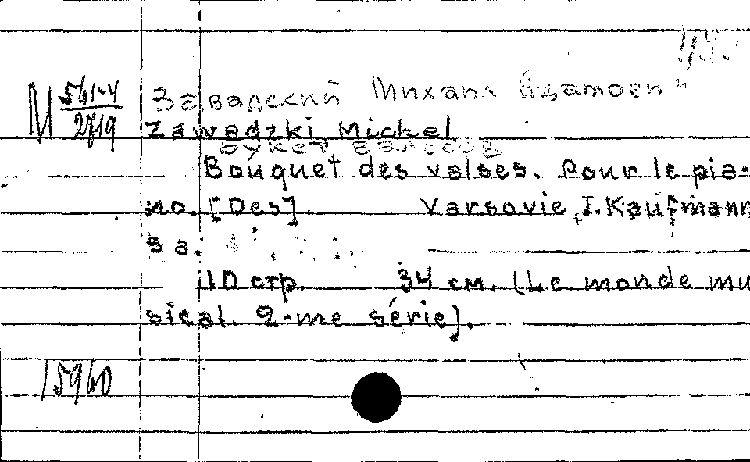 М 561-4
2719
Завадский Михаил Адамович
Zawadzki Michel
Букет вальсов
Bouquet des valses. Pour le pia-
no. [Des] Varsovie, J. Kaufmann
s a.
10 стр. 34 см. (Le monde mu
sical. 2-me série].
15960